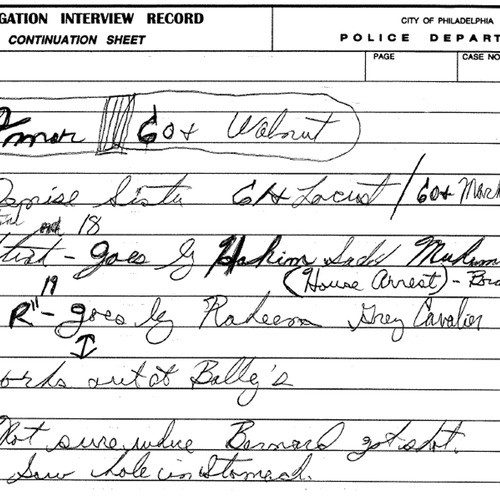 GATION INTERVIEW RECORD
CONTINUATION SHEET
CITY OF PHILADELPHIA
POLICE DEPART
PAGE
CASE NO
60+ Walnut
Sista 61+ Locust / 60+ Mark
18
- goes by Hakim
(House Arrest) -
19
R" - goes by Raheem Grey Cavalier
orks out at Bally's
Not sure where Bernard got shot.
Saw hole in stomach.